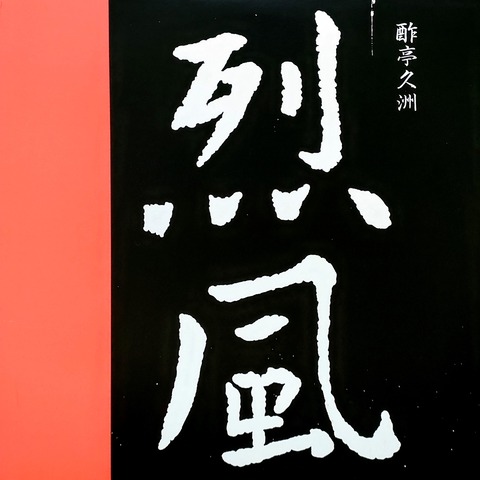 酢亭久洲
烈風